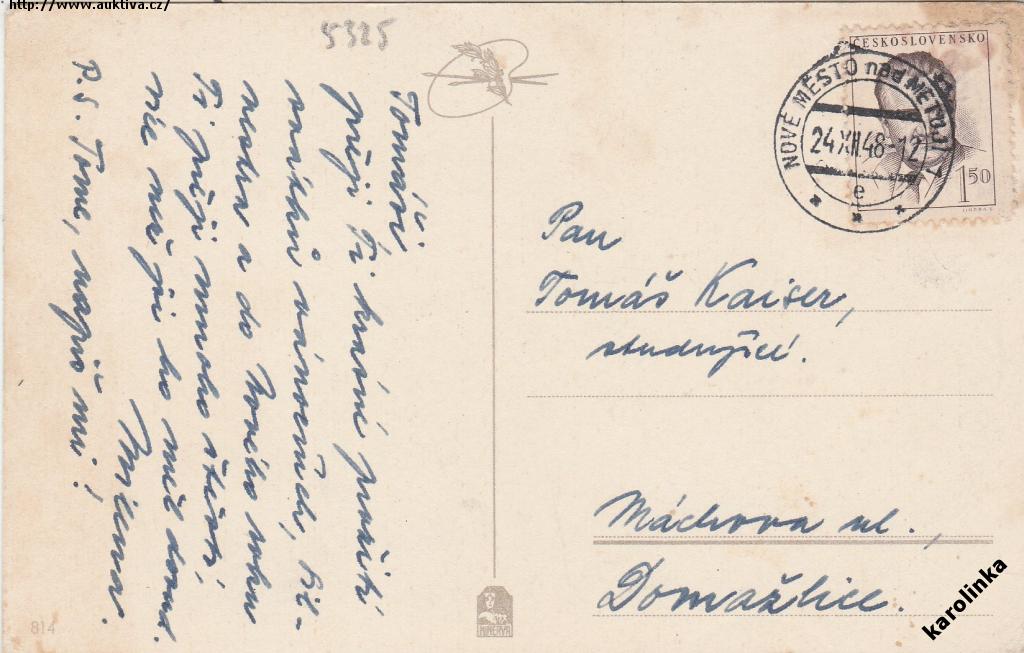 http://www.auktiva.cz/
5325
Tomáši
přeji Ti krásné prožití
svátků vánočních, Sil-
vestra a do Nového roku
Ti přeji mnoho štěstí,
více než jsi ho měl dosud.
Milena.
P.S. Tome, napiš mi!
ČESKOSLOVENSKO
1 50
NOVÉ MĚSTO nad METUJÍ
24.XII.48-12
e
Pan
Tomáš Kaiser,
studující.
Máchova ul.,
Domažlice.
814
MINERVA
karolinka